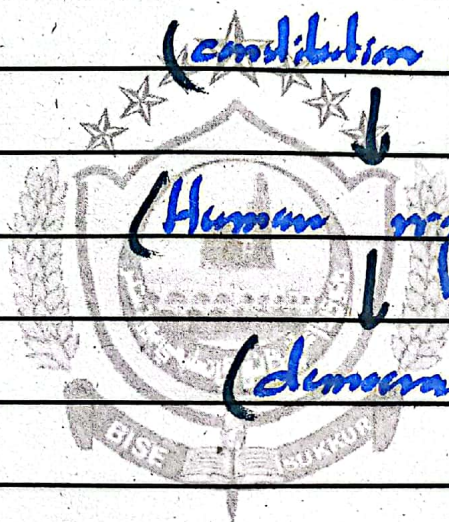 (constitution
(Human
(democra
BISE SUKKUR